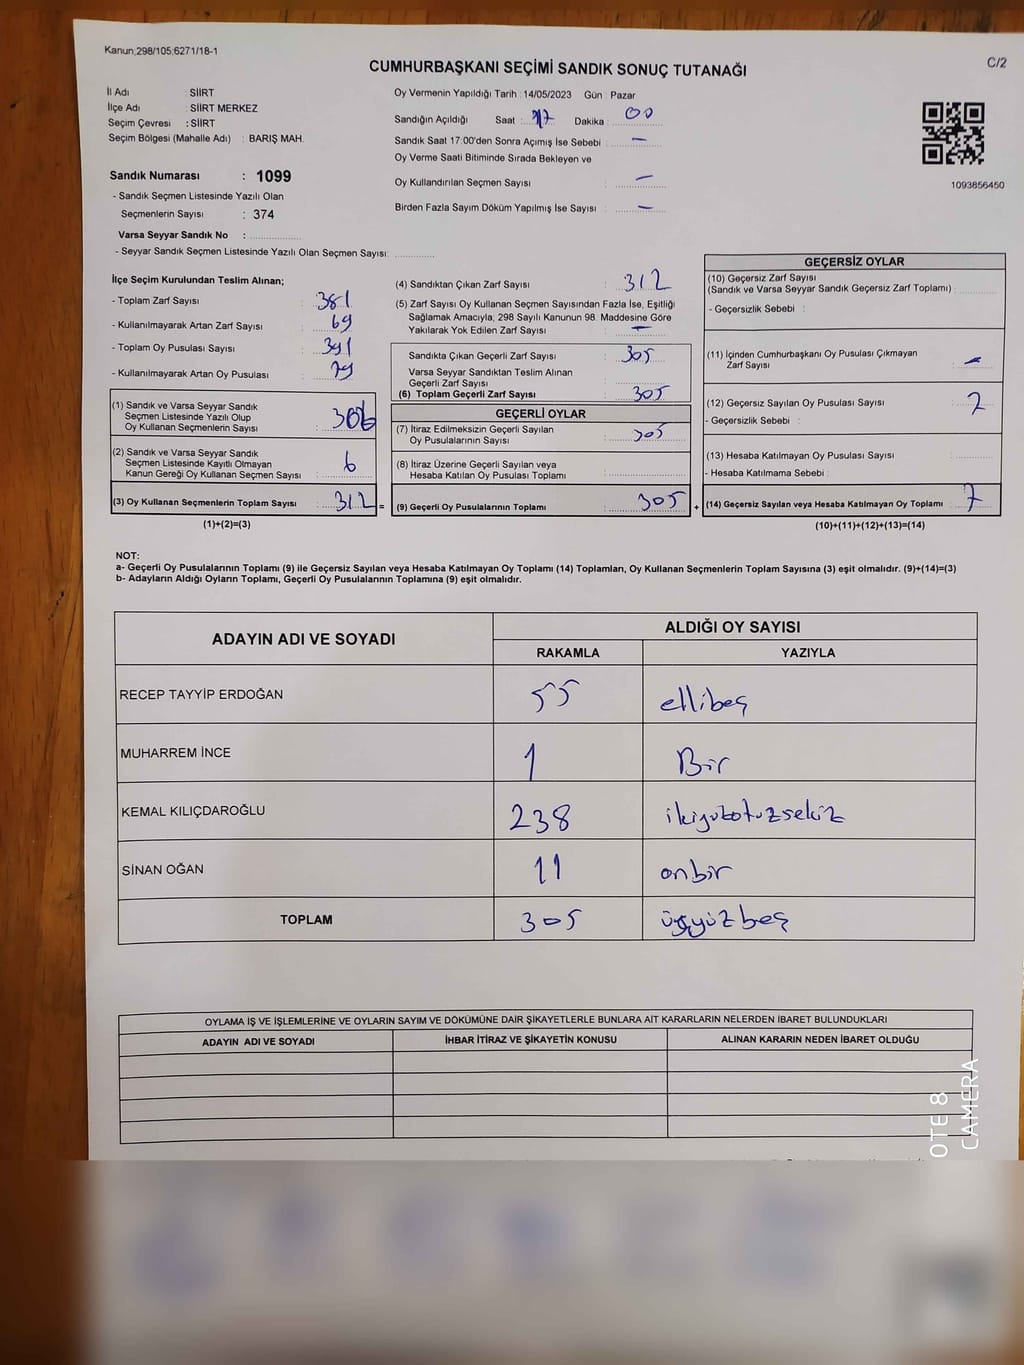 Kanun;298/105;6271/18-1
C/2
CUMHURBAŞKANI SEÇİMİ SANDIK SONUÇ TUTANAĞI
İl Adı : SİİRT
İlçe Adı : SİİRT MERKEZ
Seçim Çevresi : SİİRT
Seçim Bölgesi (Mahalle Adı) : BARIŞ MAH.
Sandık Numarası : 1099
- Sandık Seçmen Listesinde Yazılı Olan
Seçmenlerin Sayısı : 374
Varsa Seyyar Sandık No :
- Seyyar Sandık Seçmen Listesinde Yazılı Olan Seçmen Sayısı:
Oy Vermenin Yapıldığı Tarih : 14/05/2023 Gün : Pazar
Sandığın Açıldığı Saat : 17 Dakika : 00
Sandık Saat 17:00'den Sonra Açımış İse Sebebi : –
Oy Verme Saati Bitiminde Sırada Bekleyen ve
Oy Kullandırılan Seçmen Sayısı : –
Birden Fazla Sayım Döküm Yapılmış İse Sayısı : –
1093856450
İlçe Seçim Kurulundan Teslim Alınan;
- Toplam Zarf Sayısı : 381
- Kullanılmayarak Artan Zarf Sayısı : 69
- Toplam Oy Pusulası Sayısı : 391
- Kullanılmayarak Artan Oy Pusulası : 79
(1) Sandık ve Varsa Seyyar Sandık
Seçmen Listesinde Yazılı Olup
Oy Kullanan Seçmenlerin Sayısı : 306
(2) Sandık ve Varsa Seyyar Sandık
Seçmen Listesinde Kayıtlı Olmayan
Kanun Gereği Oy Kullanan Seçmen Sayısı : 6
(3) Oy Kullanan Seçmenlerin Toplam Sayısı : 312 =
(1)+(2)=(3)
(4) Sandıktan Çıkan Zarf Sayısı : 312
(5) Zarf Sayısı Oy Kullanan Seçmen Sayısından Fazla İse, Eşitliği
Sağlamak Amacıyla; 298 Sayılı Kanunun 98. Maddesine Göre
Yakılarak Yok Edilen Zarf Sayısı : –
Sandıkta Çıkan Geçerli Zarf Sayısı : 305
Varsa Seyyar Sandıktan Teslim Alınan
Geçerli Zarf Sayısı :
(6) Toplam Geçerli Zarf Sayısı : 305
GEÇERLİ OYLAR
(7) İtiraz Edilmeksizin Geçerli Sayılan
Oy Pusulalarının Sayısı : 305
(8) İtiraz Üzerine Geçerli Sayılan veya
Hesaba Katılan Oy Pusulası Toplamı :
(9) Geçerli Oy Pusulalarının Toplamı : 305 +
GEÇERSİZ OYLAR
(10) Geçersiz Zarf Sayısı
(Sandık ve Varsa Seyyar Sandık Geçersiz Zarf Toplamı) :
- Geçersizlik Sebebi :
(11) İçinden Cumhurbaşkanı Oy Pusulası Çıkmayan
Zarf Sayısı : –
(12) Geçersiz Sayılan Oy Pusulası Sayısı : 7
- Geçersizlik Sebebi :
(13) Hesaba Katılmayan Oy Pusulası Sayısı :
- Hesaba Katılmama Sebebi :
(14) Geçersiz Sayılan veya Hesaba Katılmayan Oy Toplamı : 7
(10)+(11)+(12)+(13)=(14)
NOT:
a- Geçerli Oy Pusulalarının Toplamı (9) ile Geçersiz Sayılan veya Hesaba Katılmayan Oy Toplamı (14) Toplamları, Oy Kullanan Seçmenlerin Toplam Sayısına (3) eşit olmalıdır. (9)+(14)=(3)
b- Adayların Aldığı Oyların Toplamı, Geçerli Oy Pusulalarının Toplamına (9) eşit olmalıdır.
ADAYIN ADI VE SOYADI ALDIĞI OY SAYISI
RAKAMLA YAZIYLA
RECEP TAYYİP ERDOĞAN 55 ellibeş
MUHARREM İNCE 1 Bir
KEMAL KILIÇDAROĞLU 238 ikiyüzotuzsekiz
SİNAN OĞAN 11 onbir
TOPLAM 305 üçyüzbeş
OYLAMA İŞ VE İŞLEMLERİNE VE OYLARIN SAYIM VE DÖKÜMÜNE DAİR ŞİKAYETLERLE BUNLARA AİT KARARLARIN NELERDEN İBARET BULUNDUKLARI
ADAYIN ADI VE SOYADI İHBAR İTİRAZ VE ŞİKAYETİN KONUSU ALINAN KARARIN NEDEN İBARET OLDUĞU
OTE 8
CAMERA